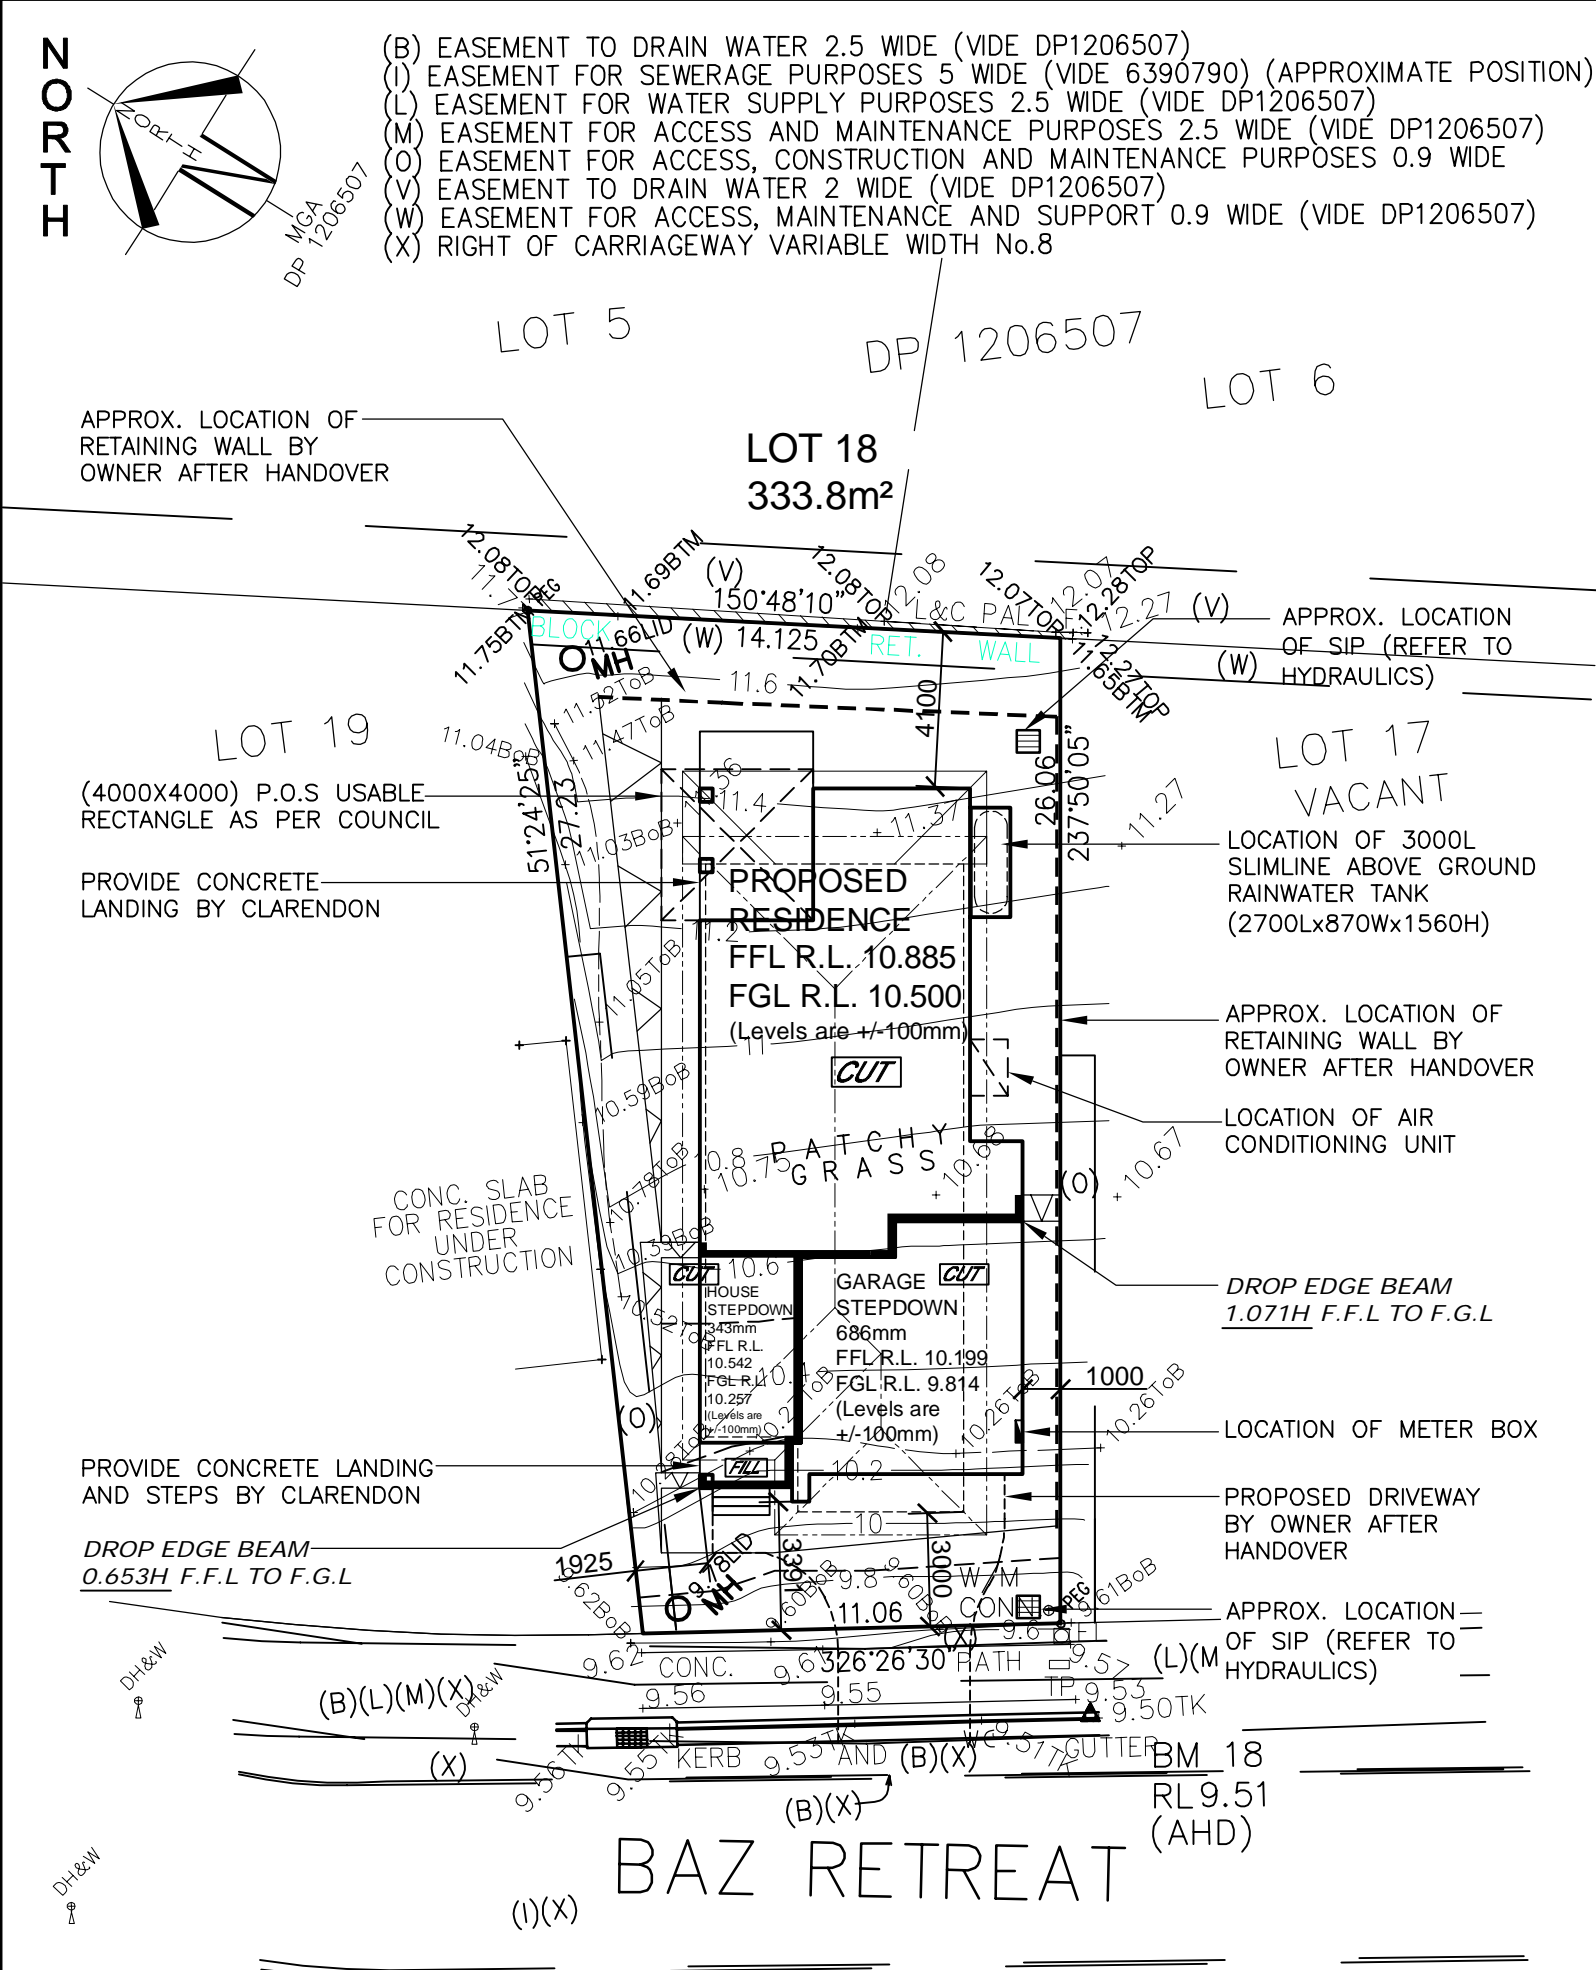 NORTH
NORTH
MGA
DP 1206507
(B) EASEMENT TO DRAIN WATER 2.5 WIDE (VIDE DP1206507)
(I) EASEMENT FOR SEWERAGE PURPOSES 5 WIDE (VIDE 6390790) (APPROXIMATE POSITION)
(L) EASEMENT FOR WATER SUPPLY PURPOSES 2.5 WIDE (VIDE DP1206507)
(M) EASEMENT FOR ACCESS AND MAINTENANCE PURPOSES 2.5 WIDE (VIDE DP1206507)
(O) EASEMENT FOR ACCESS, CONSTRUCTION AND MAINTENANCE PURPOSES 0.9 WIDE
(V) EASEMENT TO DRAIN WATER 2 WIDE (VIDE DP1206507)
(W) EASEMENT FOR ACCESS, MAINTENANCE AND SUPPORT 0.9 WIDE (VIDE DP1206507)
(X) RIGHT OF CARRIAGEWAY VARIABLE WIDTH No.8
LOT 5
DP 1206507
LOT 6
APPROX. LOCATION OF
RETAINING WALL BY
OWNER AFTER HANDOVER
LOT 18
333.8m²
12.08TOP
PEG
11.75BTM
11.69BTM
(V)
150°48'10"
12.08TOP
12.08
L&C PAL F
12.07TOP
12.07
12.28TOP
12.27
(V)
BLOCK
11.66LID
(W) 14.125
11.70BTM
RET.
WALL
12.27TOP
11.65BTM
(W)
MH
APPROX. LOCATION
OF SIP (REFER TO
HYDRAULICS)
11.6
11.52ToB
11.47ToB
11.04BoB
4100
LOT 19
LOT 17
VACANT
(4000X4000) P.O.S USABLE
RECTANGLE AS PER COUNCIL
51°24'25"
27.23
11.4
11.37
26.06
237°50'05"
11.27
11.03BoB
LOCATION OF 3000L
SLIMLINE ABOVE GROUND
RAINWATER TANK
(2700Lx870Wx1560H)
PROVIDE CONCRETE
LANDING BY CLARENDON
PROPOSED
RESIDENCE
FFL R.L. 10.885
FGL R.L. 10.500
(Levels are +/-100mm)
11.2
11.05ToB
11
CUT
APPROX. LOCATION OF
RETAINING WALL BY
OWNER AFTER HANDOVER
10.59BoB
LOCATION OF AIR
CONDITIONING UNIT
PATCHY
GRASS
10.8
10.75
10.68
10.67
(O)
10.78ToB
CONC. SLAB
FOR RESIDENCE
UNDER
CONSTRUCTION
10.39BoB
10.6
CUT
CUT
HOUSE
STEPDOWN
343mm
FFL R.L.
10.542
FGL R.L.
10.257
(Levels are
+/-100mm)
GARAGE
STEPDOWN
686mm
FFL R.L. 10.199
FGL R.L. 9.814
(Levels are
+/-100mm)
DROP EDGE BEAM
1.071H F.F.L TO F.G.L
10.52ToB
10.4
1000
10.26ToB
10.26ToB
(O)
LOCATION OF METER BOX
10.28ToB
FILL
10.2
PROVIDE CONCRETE LANDING
AND STEPS BY CLARENDON
PROPOSED DRIVEWAY
BY OWNER AFTER
HANDOVER
10
DROP EDGE BEAM
0.653H F.F.L TO F.G.L
1925
9.78LID
MH
3391
3000
9.8
9.62BoB
9.60BoB
9.60BoB
W/M
CONN
PEG
9.61BoB
11.06
9.6
APPROX. LOCATION
OF SIP (REFER TO
HYDRAULICS)
(X)
9.62
CONC.
9.61
326°26'30"
PATH
9.57
(L)(M
TP
9.53
9.50TK
9.56
9.55
DH&W
DH&W
(B)(L)(M)(X)
(X)
9.56TK
9.55TK
KERB
9.53TK
AND
(B)(X)
VC
9.51TK
GUTTER
BM 18
RL9.51
(AHD)
(B)(X)
BAZ RETREAT
DH&W
(I)(X)